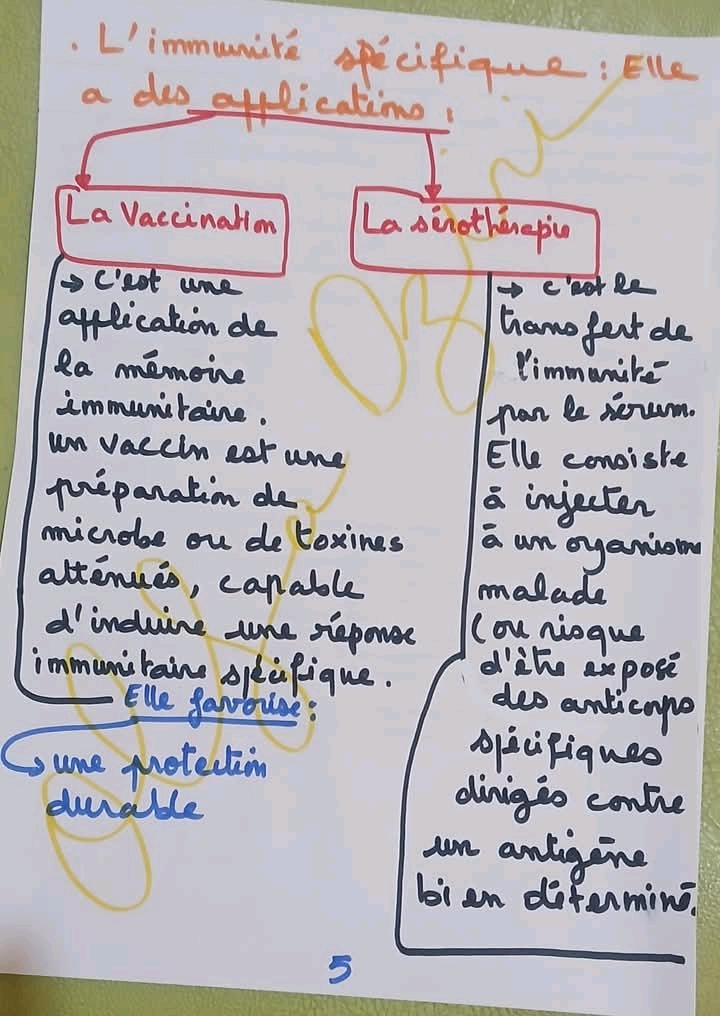 . L'immunité spécifique : Elle
a des applications :
La Vaccination
→ C'est une
application de
la mémoire
immunitaire.
un vaccin est une
préparation de
microbe ou de toxines
atténués, capable
d'induire une réponse
immunitaire spécifique.
Elle favorise :
une protection
durable
La sérothérapie
→ c'est le
transfert de
l'immunité
par le sérum.
Elle consiste
à injecter
à un organisme
malade
(ou risque
d'être exposé
des anticorps
spécifiques
dirigés contre
un antigène
bien déterminé.
5